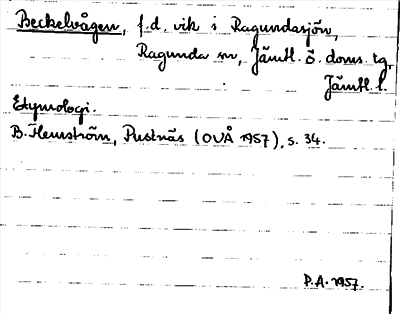 Beckelvågen, f.d. vik i Ragundasjön,
Ragunda sn, Jämtl. ö. doms. tg,
Jämtl. l.
Etymologi.
B. Flemström, Pustnäs (OVÅ 1957), s. 34.
P.A. 1957.